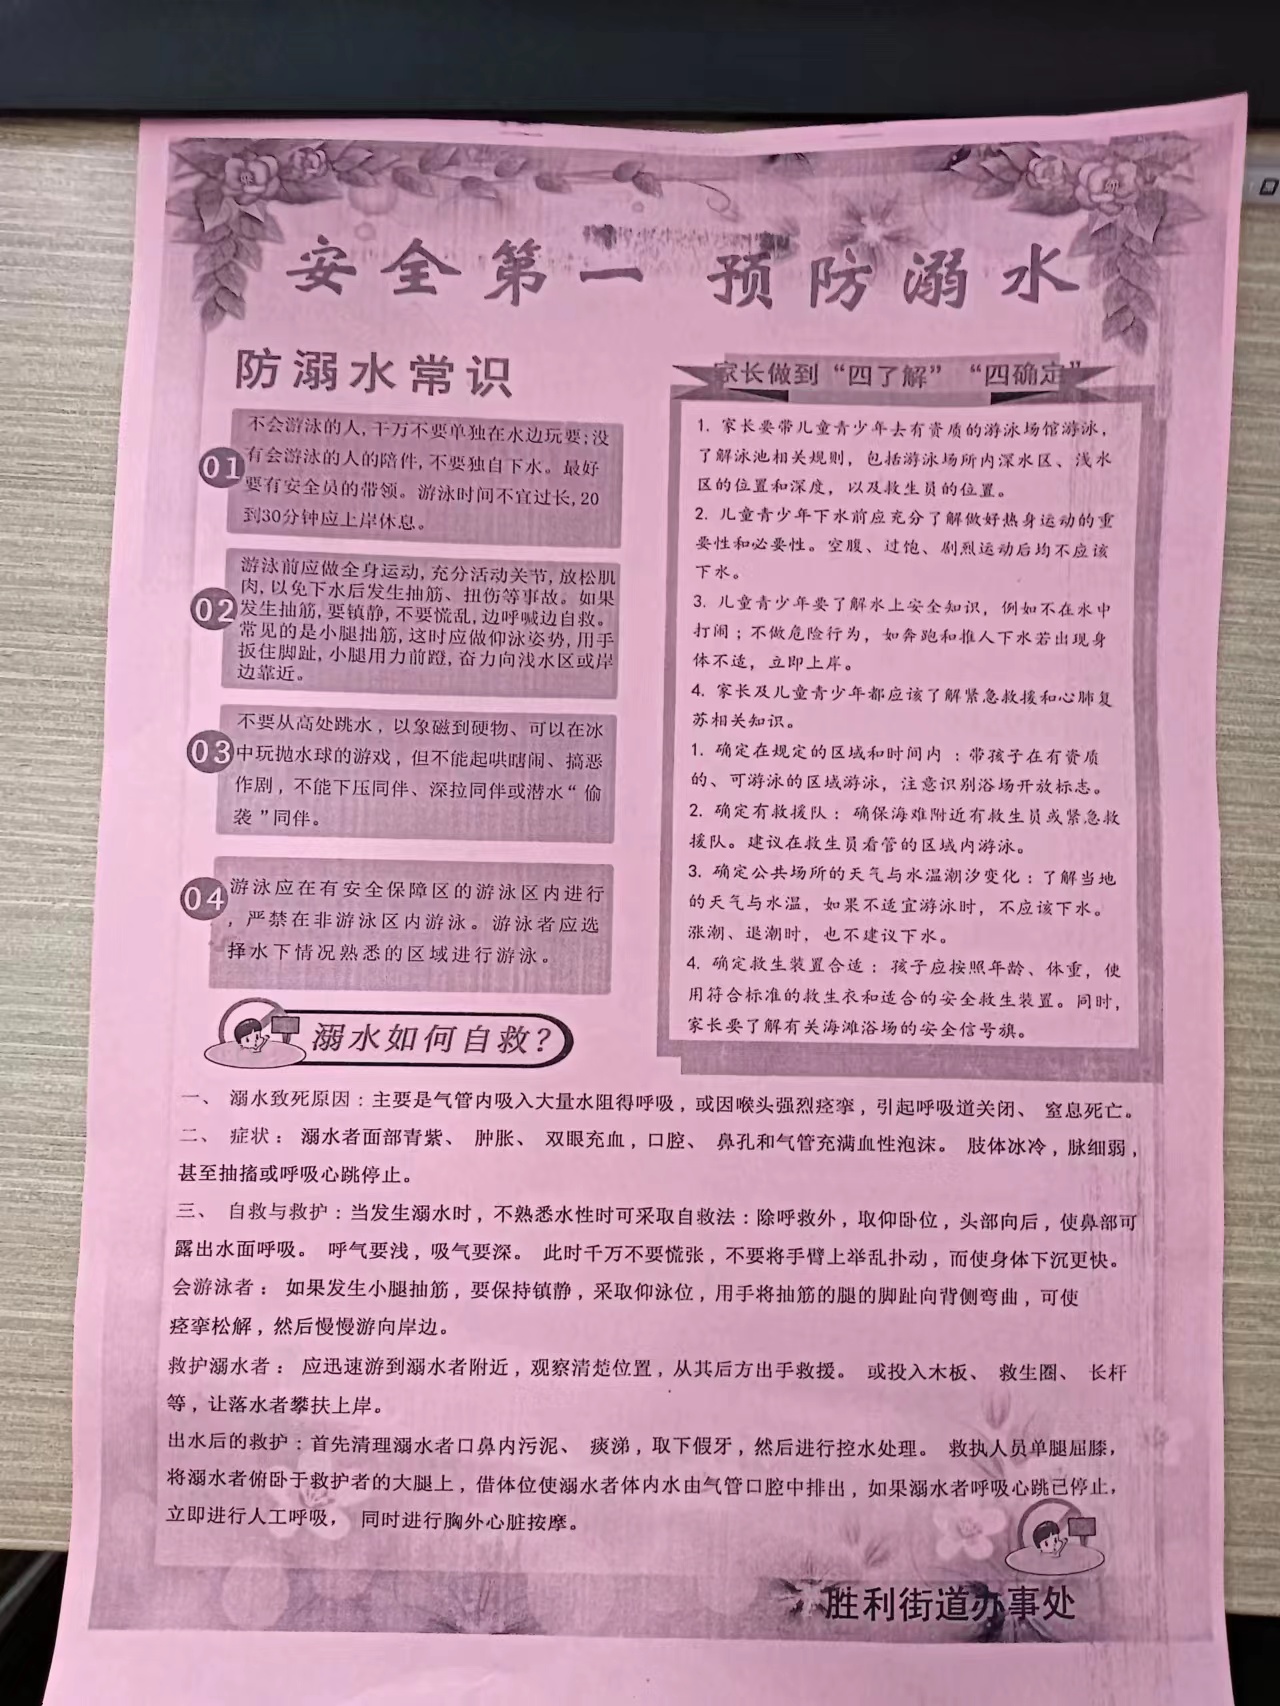 安全第一 预防溺水
防溺水常识
01
不会游泳的人,千万不要单独在水边玩耍;没
有会游泳的人的陪伴,不要独自下水。最好
要有安全员的带领。游泳时间不宜过长,20
到30分钟应上岸休息。
02
游泳前应做全身运动,充分活动关节,放松肌
肉,以免下水后发生抽筋、扭伤等事故。如果
发生抽筋,要镇静,不要慌乱,边呼喊边自救。
常见的是小腿拙筋,这时应做仰泳姿势,用手
扳住脚趾,小腿用力前蹬,奋力向浅水区或岸
边靠近。
03
不要从高处跳水，以象磁到硬物、可以在冰
中玩抛水球的游戏，但不能起哄瞎闹、搞恶
作剧，不能下压同伴、深拉同伴或潜水“偷
袭”同伴。
04
游泳应在有安全保障区的游泳区内进行
，严禁在非游泳区内游泳。游泳者应选
择水下情况熟悉的区域进行游泳。
家长做到“四了解”“四确定”
1. 家长要带儿童青少年去有资质的游泳场馆游泳，
了解泳池相关规则，包括游泳场所内深水区、浅水
区的位置和深度，以及救生员的位置。
2. 儿童青少年下水前应充分了解做好热身运动的重
要性和必要性。空腹、过饱、剧烈运动后均不应该
下水。
3. 儿童青少年要了解水上安全知识，例如不在水中
打闹；不做危险行为，如奔跑和推人下水若出现身
体不适，立即上岸。
4. 家长及儿童青少年都应该了解紧急救援和心肺复
苏相关知识。
1. 确定在规定的区域和时间内：带孩子在有资质
的、可游泳的区域游泳，注意识别浴场开放标志。
2. 确定有救援队：确保海难附近有救生员或紧急救
援队。建议在救生员看管的区域内游泳。
3. 确定公共场所的天气与水温潮汐变化：了解当地
的天气与水温，如果不适宜游泳时，不应该下水。
涨潮、退潮时，也不建议下水。
4. 确定救生装置合适：孩子应按照年龄、体重，使
用符合标准的救生衣和适合的安全救生装置。同时，
家长要了解有关海滩浴场的安全信号旗。
溺水如何自救?
一、 溺水致死原因：主要是气管内吸入大量水阻得呼吸，或因喉头强烈痉挛，引起呼吸道关闭、 窒息死亡。
二、 症状： 溺水者面部青紫、 肿胀、 双眼充血，口腔、 鼻孔和气管充满血性泡沫。 肢体冰冷，脉细弱，
甚至抽搐或呼吸心跳停止。
三、 自救与救护：当发生溺水时，不熟悉水性时可采取自救法：除呼救外，取仰卧位，头部向后，使鼻部可
露出水面呼吸。 呼气要浅，吸气要深。 此时千万不要慌张，不要将手臂上举乱扑动，而使身体下沉更快。
会游泳者： 如果发生小腿抽筋，要保持镇静，采取仰泳位，用手将抽筋的腿的脚趾向背侧弯曲，可使
痉挛松解，然后慢慢游向岸边。
救护溺水者： 应迅速游到溺水者附近，观察清楚位置，从其后方出手救援。 或投入木板、 救生圈、 长杆
等，让落水者攀扶上岸。
出水后的救护：首先清理溺水者口鼻内污泥、 痰涕，取下假牙，然后进行控水处理。 救执人员单腿屈膝，
将溺水者俯卧于救护者的大腿上，借体位使溺水者体内水由气管口腔中排出，如果溺水者呼吸心跳已停止，
立即进行人工呼吸， 同时进行胸外心脏按摩。
胜利街道办事处